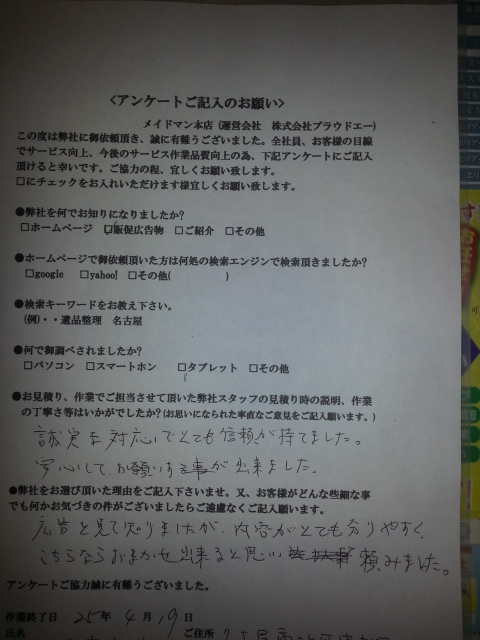 <アンケートご記入のお願い>
メイドマン本店 (運営会社 株式会社プラウドエー)
この度は弊社に御依頼頂き、誠に有難うございました。全社員、お客様の目線
でサービス向上、今後のサービス作業品質向上の為、下記アンケートにご記入
頂けると幸いです。ご協力の程、宜しくお願い致します。
□にチェックをお入れいただけます様宜しくお願い致します。
●弊社を何でお知りになりましたか?
□ホームページ □販促広告物 □ご紹介 □その他
●ホームページで御依頼頂いた方は何処の検索エンジンで検索頂きましたか?
□google □yahoo! □その他( )
●検索キーワードをお教え下さい。
(例)・・遺品整理 名古屋
●何で御調べされましたか?
□パソコン □スマートホン □タブレット □その他
●お見積り、作業でご担当させて頂いた弊社スタッフの見積り時の説明、作業
の丁寧さ等はいかがでしたか?(お思いになられた率直なご意見をご記入願います。)
誠実な対応でとても信頼が持てました。
安心してお願いする事が出来ました。
●弊社をお選び頂いた理由をご記入下さいませ。又、お客様がどんな些細な事
でも何かお気づきの件がございましたらご遠慮なくご記入願います。
広告を見て知りましたが、内容がとても分りやすく、
こちらならおまかせ出来ると思い 頼みました。
アンケートご協力誠に有難うございました。
作業終了日 25年 4月 19日
氏名 ご住所